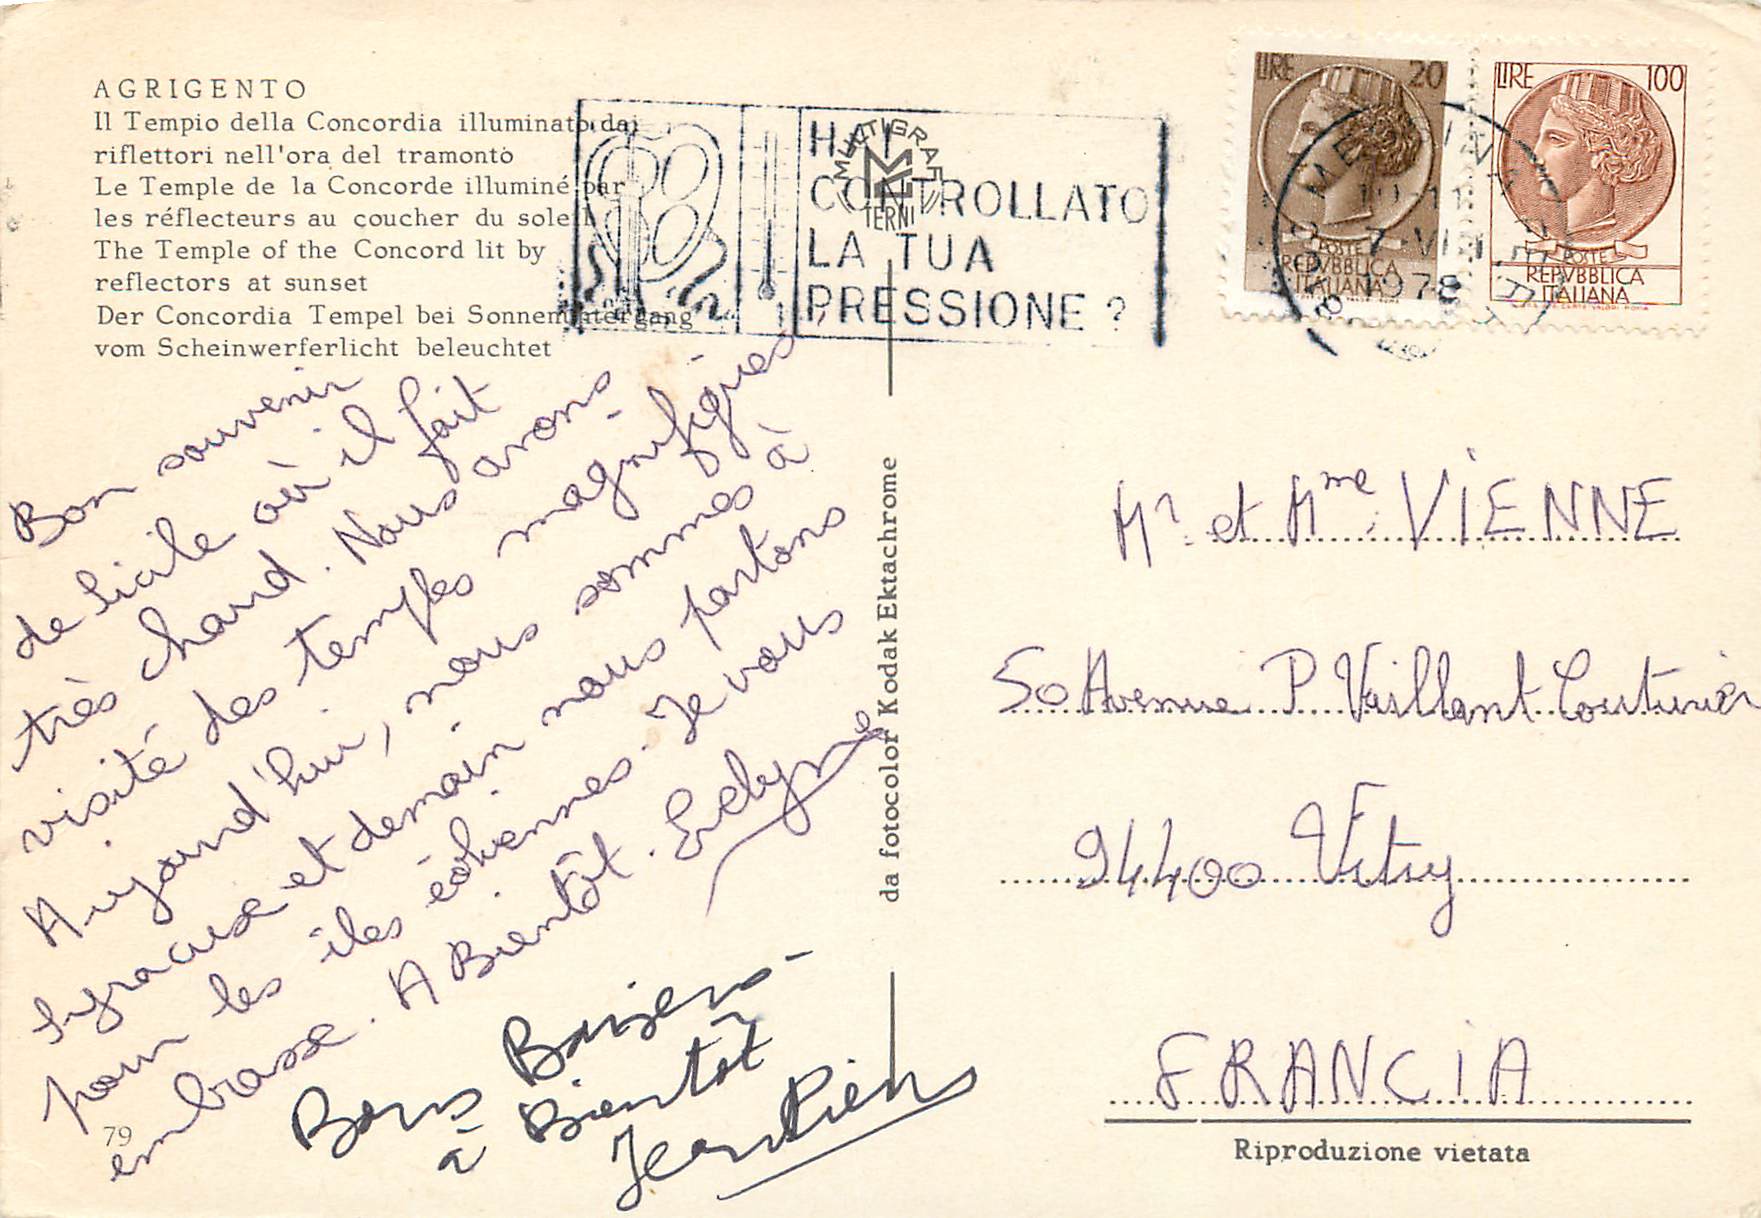 AGRIGENTO
Il Tempio della Concordia illuminato dai
riflettori nell'ora del tramonto
Le Temple de la Concorde illuminé par
les réflecteurs au coucher du soleil
The Temple of the Concord lit by
reflectors at sunset
Der Concordia Tempel bei Sonnenuntergang
vom Scheinwerferlicht beleuchtet
HAI
CONTROLLATO
LA TUA
PRESSIONE ?
MULTIGRAF
TERNI
LIRE 20
POSTE
REPVBBLICA
ITALIANA
LIRE 100
POSTE
REPVBBLICA
ITALIANA
MESSINA
1978
Bon souvenir
de Sicile où il fait
très chaud. Nous avons
visité des temples magnifiques
Aujourd'hui, nous sommes à
Syracuse et demain nous partons
pour les îles éoliennes. Je vous
embrasse. A Bientôt. Evelyne
Bons Baisers
à Bientôt
79
da fotocolor Kodak Ektachrome
Mr et Mme VIENNE
50 Avenue P. Vaillant Couturier
94400 Vitry
FRANCIA
Riproduzione vietata